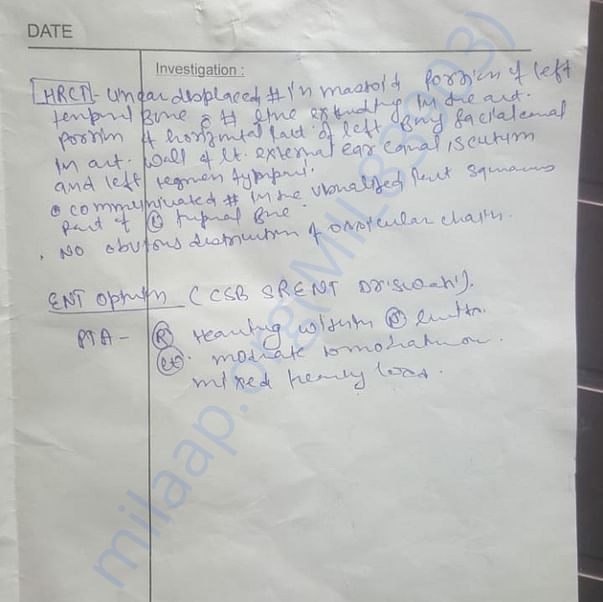 DATE
Investigation :
HRCT - Linear displaced # in mastoid portion of left
temporal Bone c # line extending in the ant.
portion of horizontal part of left bony facial canal
in ant. wall of lt. external ear canal, scutum
and left tegmen tympani.
communicated # in the visualised left squamous
part of temporal bone.
. No obvious distruction of ossicular chain.
ENT opinion (CSB SRENT
PTA - (R) Hearing within (N) limits.
(Lt). moderate
mixed hearing loss.
milaap.org(MIL_83